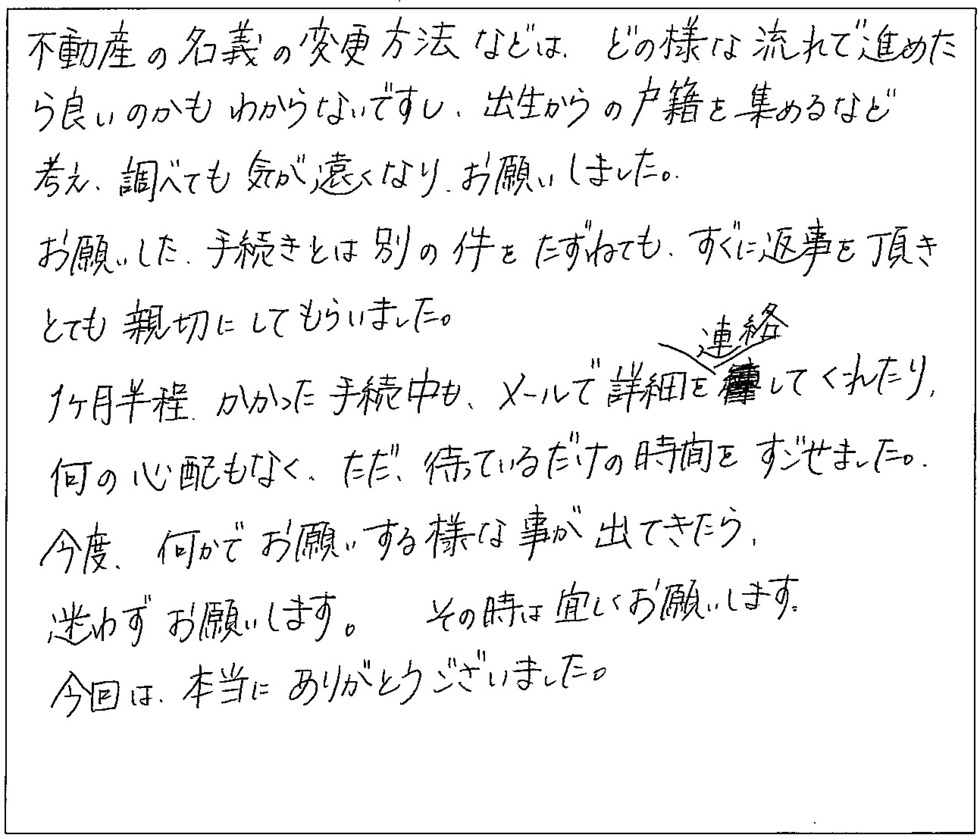 不動産の名義の変更方法などは、どの様な流れで進めた
ら良いのかもわからないですし、出生からの戸籍を集めるなど
考え、調べても気が遠くなり、お願いしました。
お願いした、手続きとは別の件をたずねても、すぐに返事を頂き
とても親切にしてもらいました。
1ヶ月半程、かかった手続中も、メールで詳細を連絡してくれたり、
何の心配もなく、ただ、待っているだけの時間をすごせました。
今度、何かでお願いする様な事が出てきたら、
迷わずお願いします。 その時は宜しくお願いします。
今回は、本当にありがとうございました。